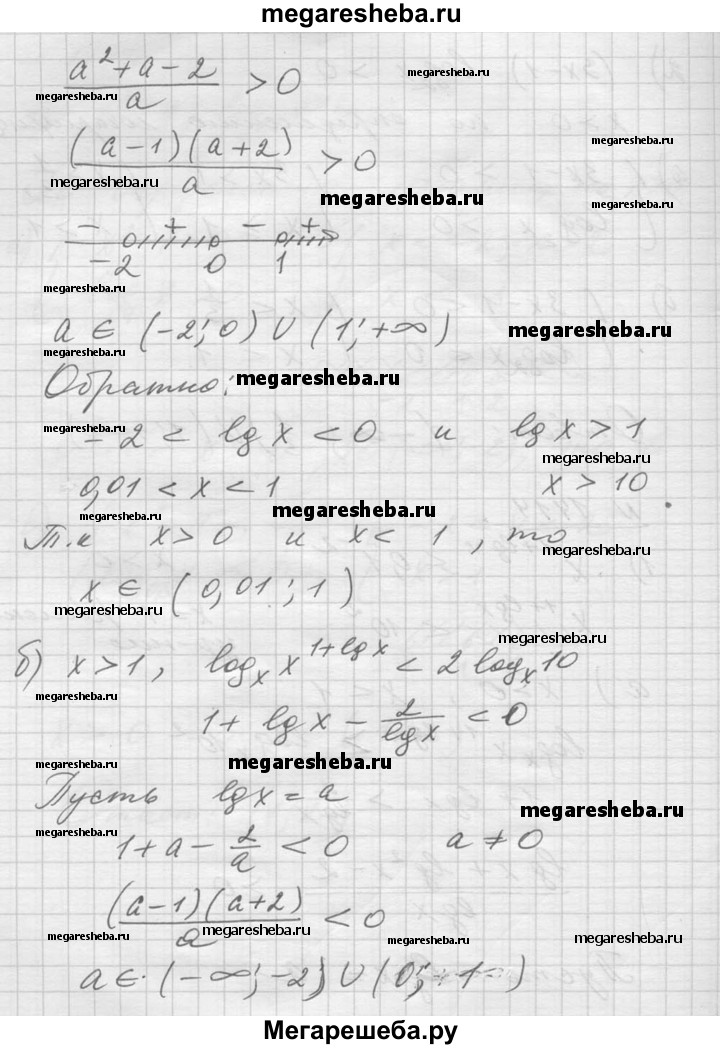 megaresheba.ru
(a² + a - 2)/a > 0
megaresheba.ru
megaresheba.ru
((a-1)(a+2))/a > 0
megaresheba.ru
megaresheba.ru
megaresheba.ru
megaresheba.ru
- + - +
-2 0 1
megaresheba.ru
a ∈ (-2; 0) ∪ (1; +∞)
megaresheba.ru
Обратно:
megaresheba.ru
megaresheba.ru
-2 < lg x < 0 и lg x > 1
megaresheba.ru
0,01 < x < 1 x > 10
megaresheba.ru
megaresheba.ru
Т.к x > 0 и x < 1, то
megaresheba.ru
x ∈ (0,01; 1)
megaresheba.ru
megaresheba.ru
б) x > 1, logₓ x^(1+lg x) < 2 logₓ 10
megaresheba.ru
1 + lg x - 2/lg x < 0
megaresheba.ru
megaresheba.ru
Пусть lg x = a
megaresheba.ru
megaresheba.ru
1 + a - 2/a < 0 a ≠ 0
((a-1)(a+2))/a < 0
megaresheba.ru
megaresheba.ru
megaresheba.ru
megaresheba.ru
a ∈ (-∞; -2) ∪ (0; 1)
Мегарешеба.ру